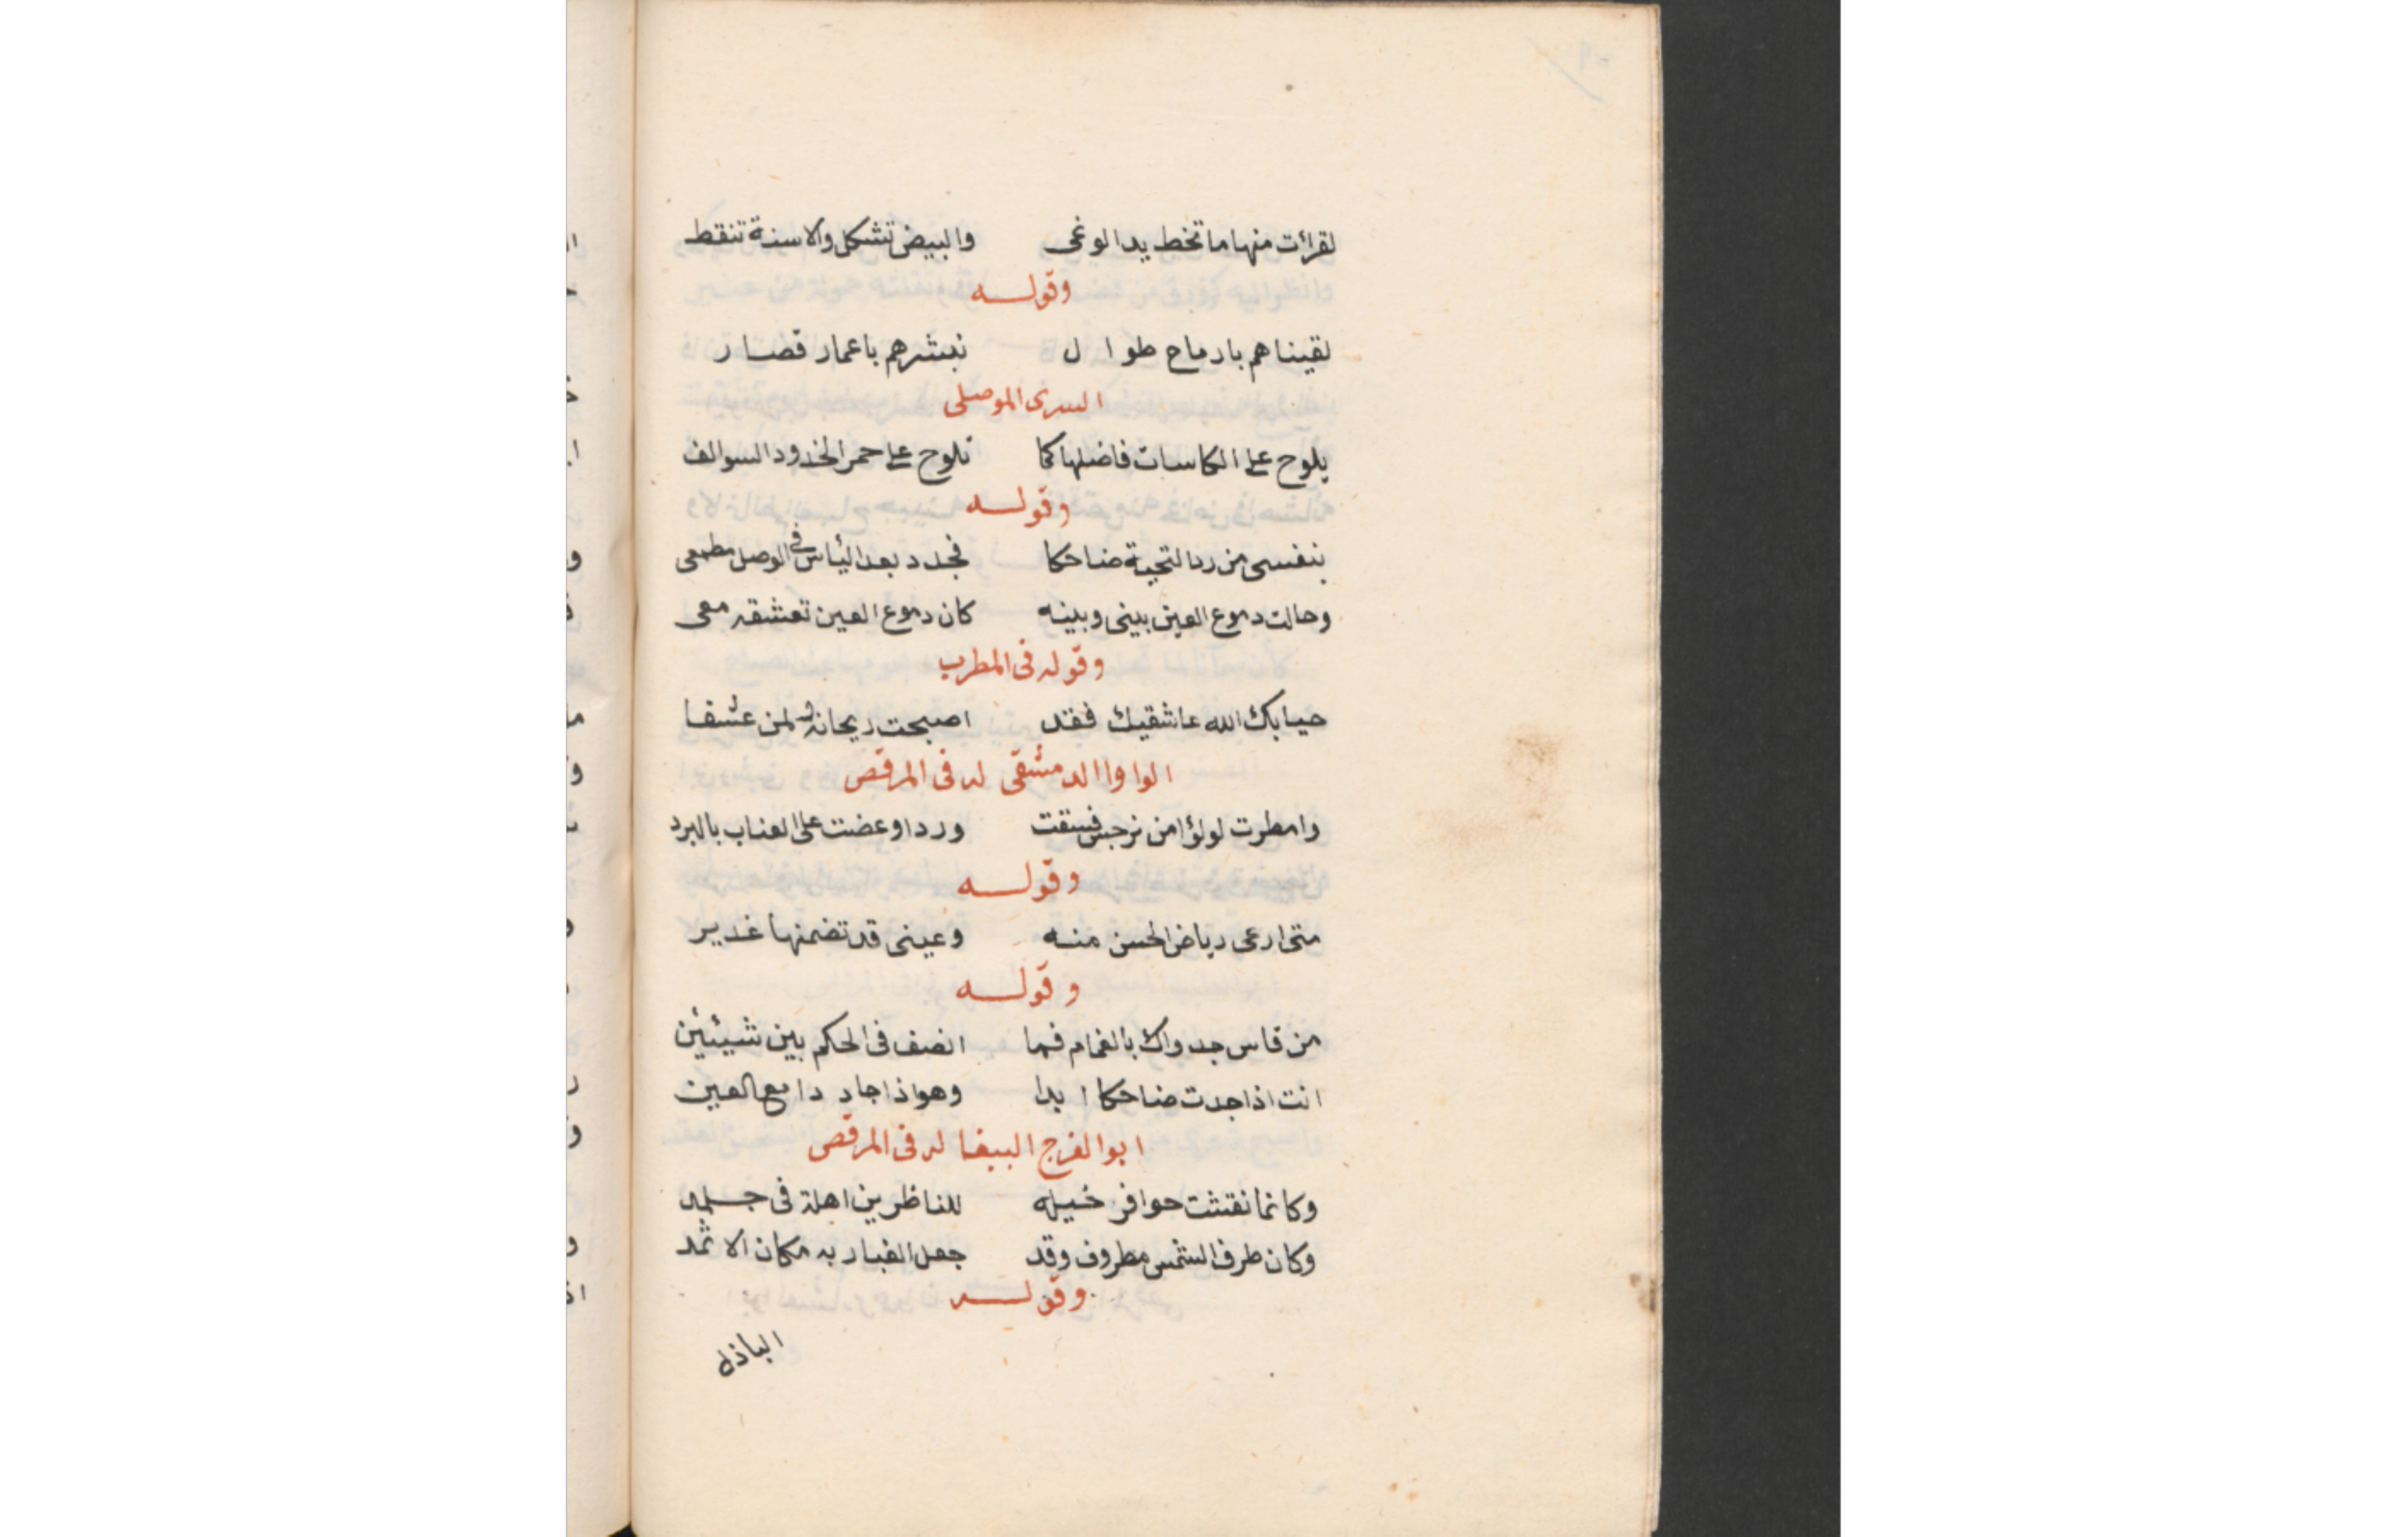 لقرأت منها ما تخط يد الوغى والبيض تشكل والاسنة تنقط
وقوله
لقيناهم بارماح طوال نبشرهم باعمار قصار
السرى الموصلى
يلوح على الكاسات فاضلها كما تلوح على حمر الخدود السوالف
وقوله
بنفسى من رد التحية ضاحكا فجدد بعد اليأس فى الوصل مطمعى
وحالت دموع العين بينى وبينه كان دموع العين تعشقه معى
وقوله فى المطرب
حيا بك الله عاشقيك فقد اصبحت ريحانة لمن عشقا
الواوا الدمشقى له فى المرقص
وامطرت لولؤا من نرجس فسقت وردا وعضت على العناب بالبرد
وقوله
متى ارعى رياض الحسن منه وعينى قد تضمنها غدير
وقوله
من قاس جدواك بالغمام فما انصف فى الحكم بين شيئين
انت اذا جدت ضاحكا ابدا وهو اذا جاد دامع العين
ابو الفرج الببغا له فى المرقص
وكانما نقشت حوافر خيله للناظرين اهلة فى جلمد
وكان طرف الشمس مطروف وقد جعل الغبار به مكان الاثمد
وقوله
الباذل